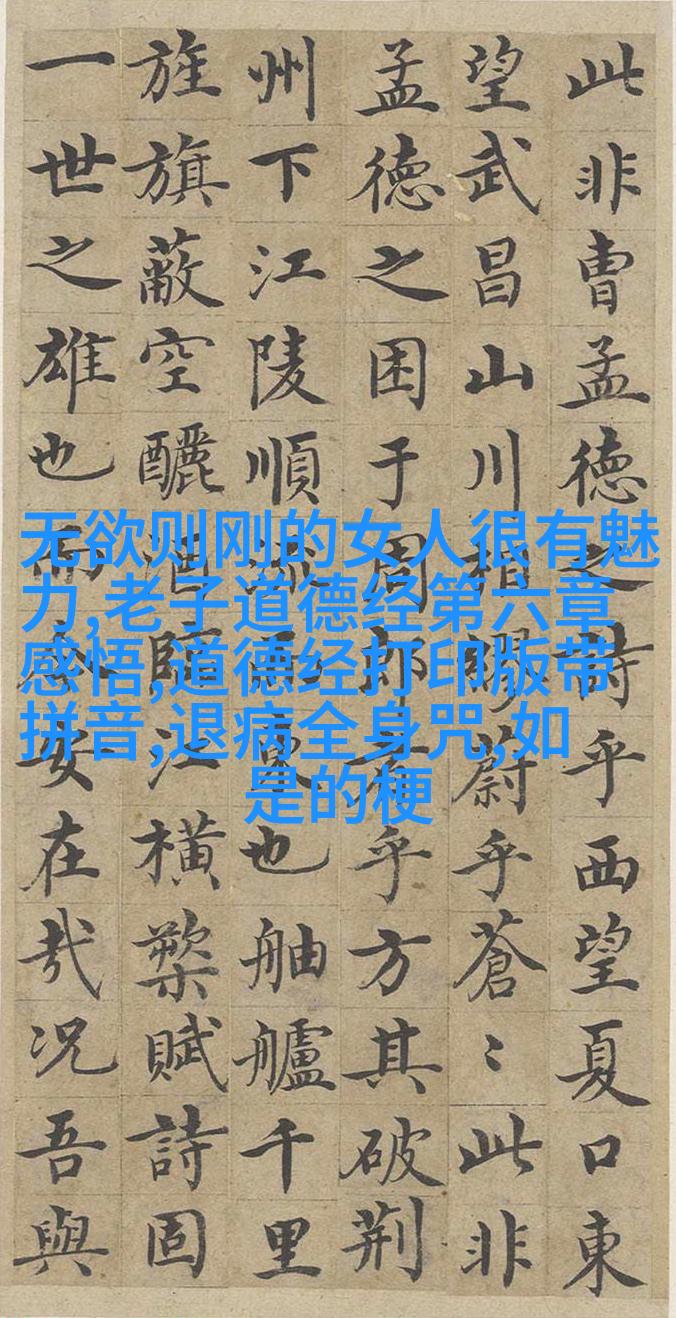 此非曹孟德之詩乎西望夏口東
望武昌山川相繆蔚乎蒼〻此非
孟德之困于周郎者乎方其破荆
州下江陵順流而東也舳艫千里
旌旗蔽空釃酒臨江横槊賦詩固
一世之雄也而今安在哉况吾與
无欲则刚的女人很有魅
力,老子道德经第六章
感悟,道德经打印版带
拼音,退病全身咒,如
是的梗